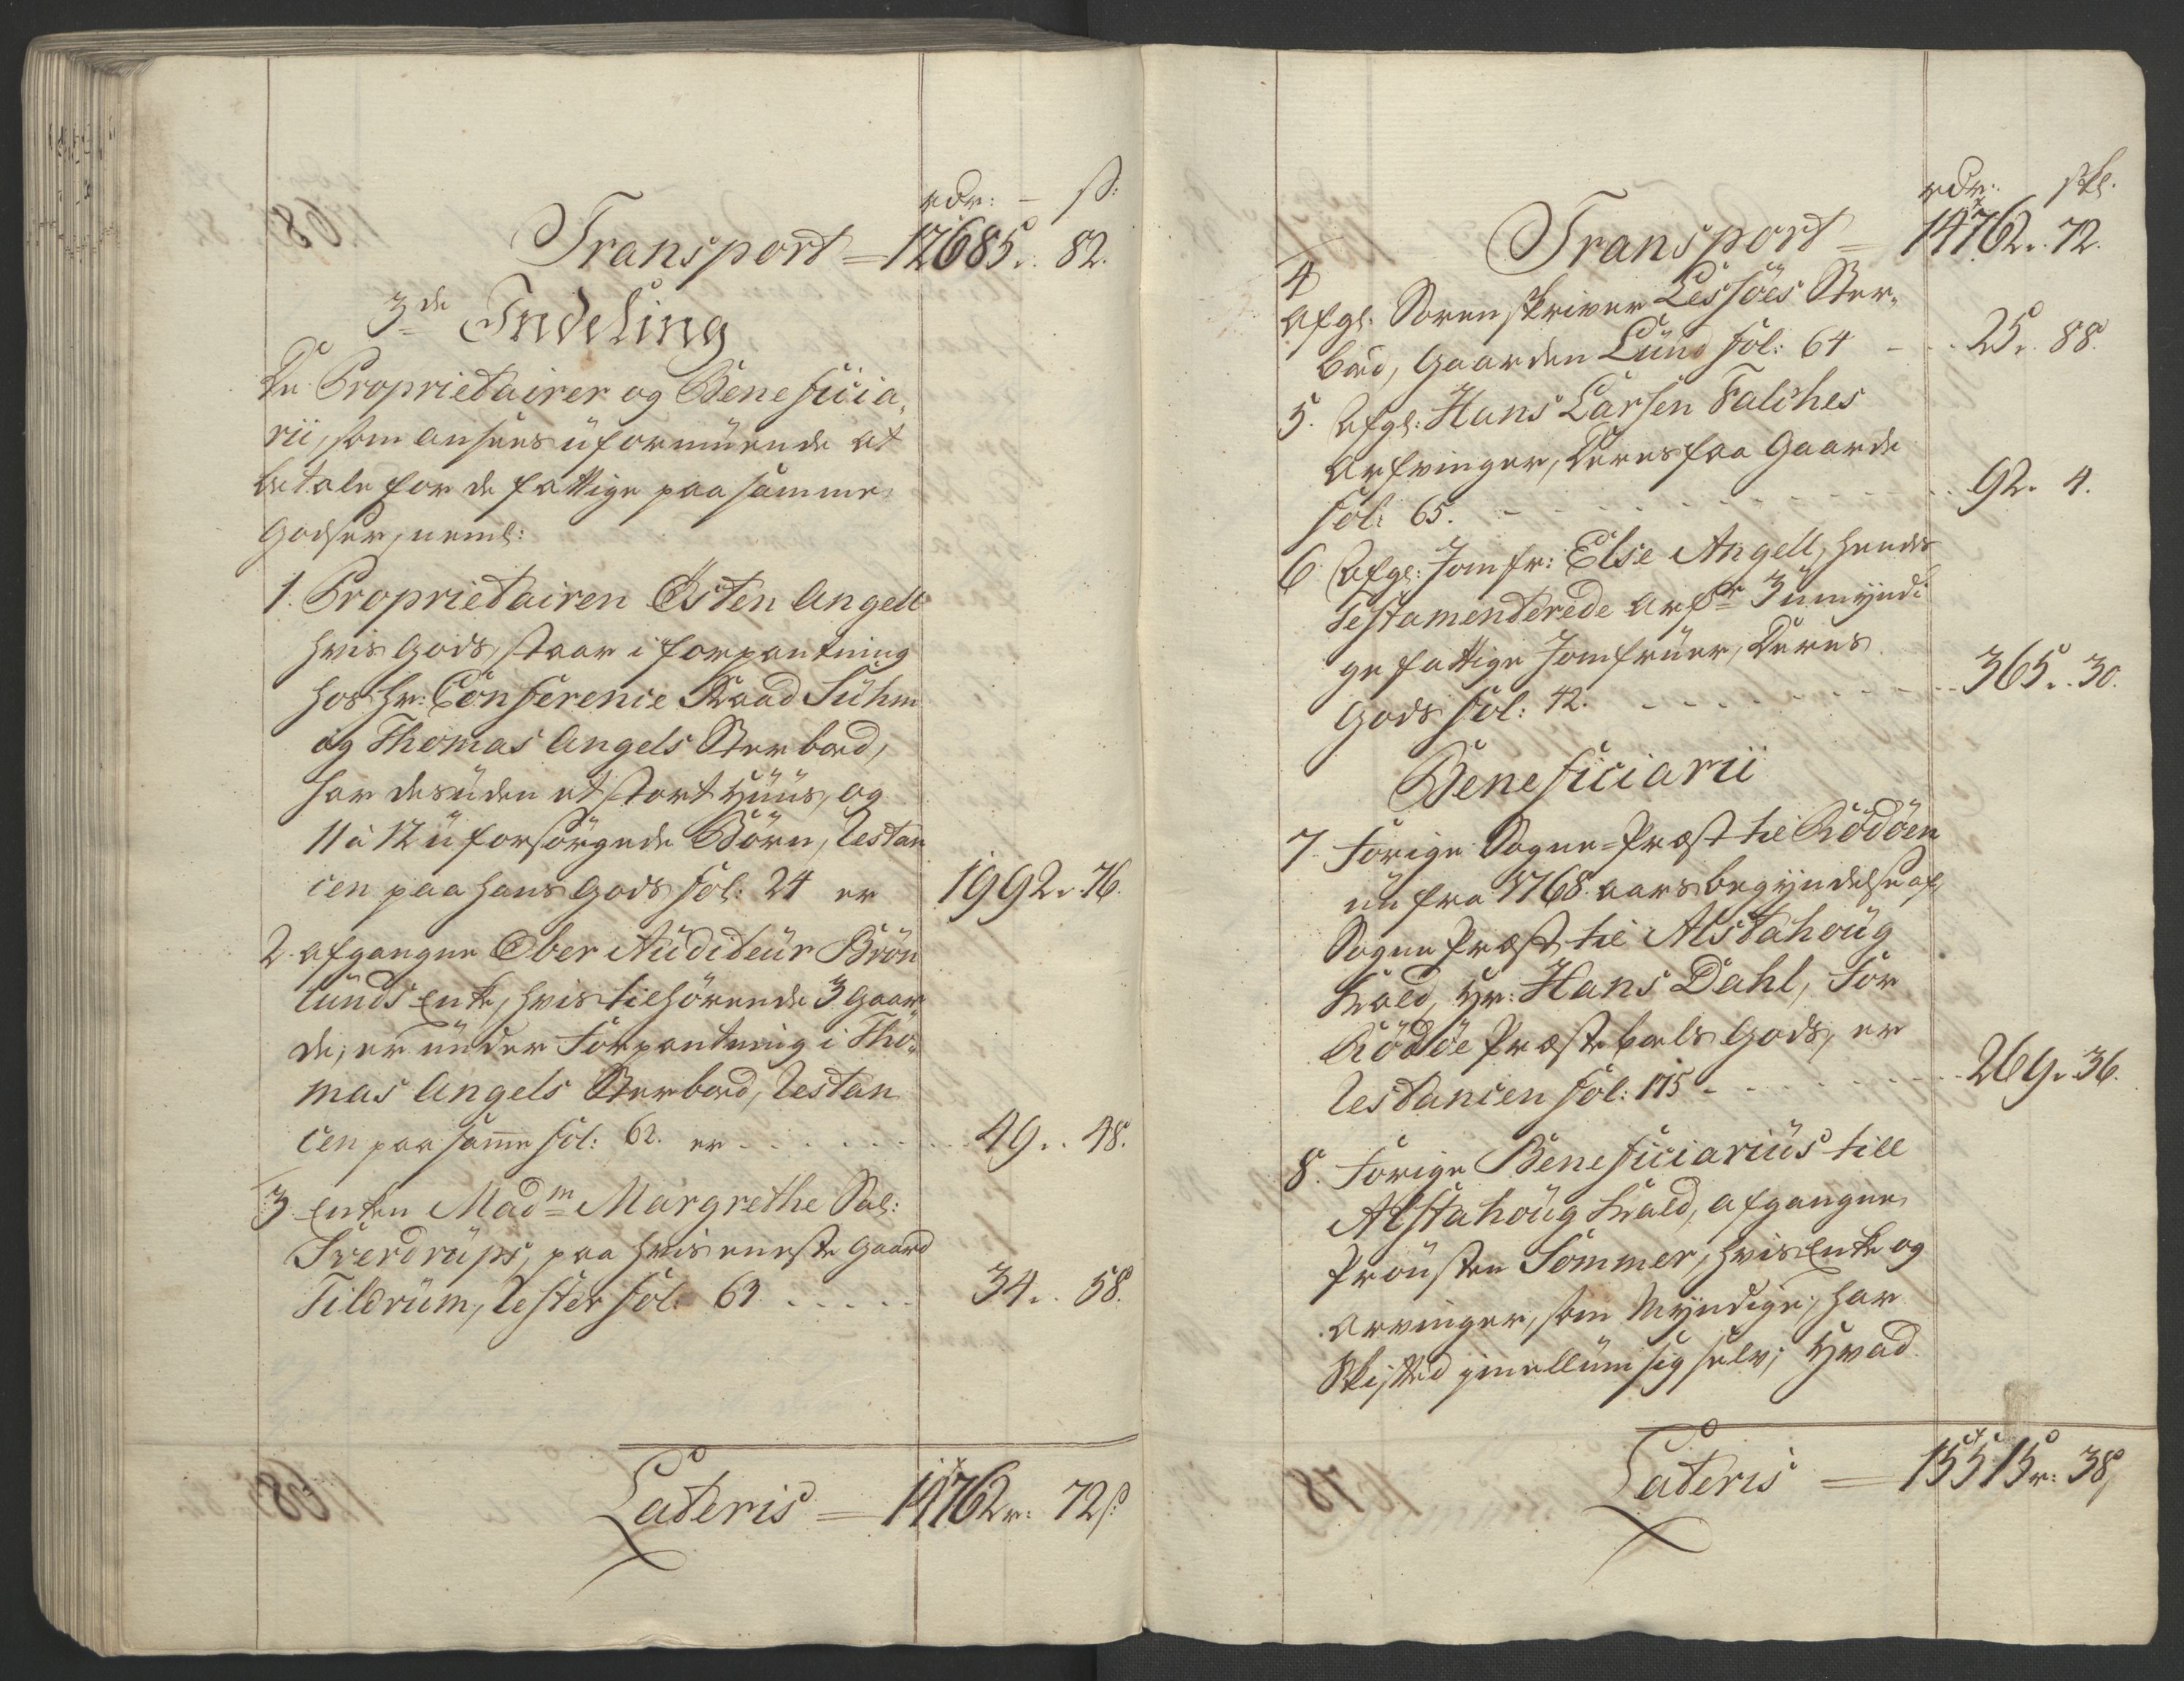 rdr: - ß:
Transport = 12685.. 82.
3de Indeling
De Proprietairer og Beneficia-
rii, som ansees uformuende at
betale for de fattige paa samme
Godser, neml:
1. Proprietairen Østen Angell
hvis Gods, staar i forpantning
hos Hr: Conference Raad Suhm
og Thomas Angels Sterboed,
har desuden et stort Huus, og
11 à 12 uforsørgede Børn, Restan
cen paa hans Gods fol: 24 er 1992.. 76.
2. afgangne Ober Auditeur Brön
lunds Enke, hvis tilhörende 3 Gaar-
de, er under Forpantning i Tho-
mas Angels Sterboed, Restan
cen paa samme fol: 62. er - - - - 49.. 48.
3 Enken Madm Margrethe Sal:
Sverdrups, paa hvis eneste Gaard
Tildrum, Rester fol: 63 - - - - 34.. 58.
Lateris = 14762 r: 72 ß
rdr: skl.
Transport = 14762.. 72.
4
Afgl: Sorenskriver Lessöes Ster-
boed, Gaarden Lund fol: 64 - - - 25.. 88.
5. Afgl: Hans Larsen Falches
Arfvinger, Deres faa Gaarde
fol: 65. - - - - - - - 92. 4.
6. Afgl: Jomfr: Else Angell, hendes
Testamenterede Arfr 3 umyndi
ge fattige Jomfruer, Deres
Gods fol: 42. - - - - - - 365.. 30.
Beneficiarii
7 Forige Sogne-Præst til Rödöen
nu fra 1768 aars begyndelse af,
Sogne Præst til Alstahoug
Kald, Hr: Hans Dahl, For
Rödöe Præstebols Gods, er
Restancen fol: 175 - - - - - 269.. 36.
8. Forige Beneficiarius till
Alstahoug Kald, afgangne
Prousten Sommer, hvis Enke og
Arvinger, som Myndige, har
Skifted jmellum sig selv; Hvad
Lateris = 15515 r: 38